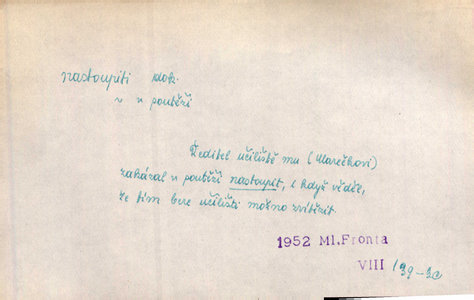 nastoupiti dok.
v n poutěži
Ředitel učiliště mu (Marečkovi)
zakázal v poutěži nastoupit, i když věděl,
že tím bere učilišti možno zvítězit.
1952 Ml.Fronta
VIII /39-3c